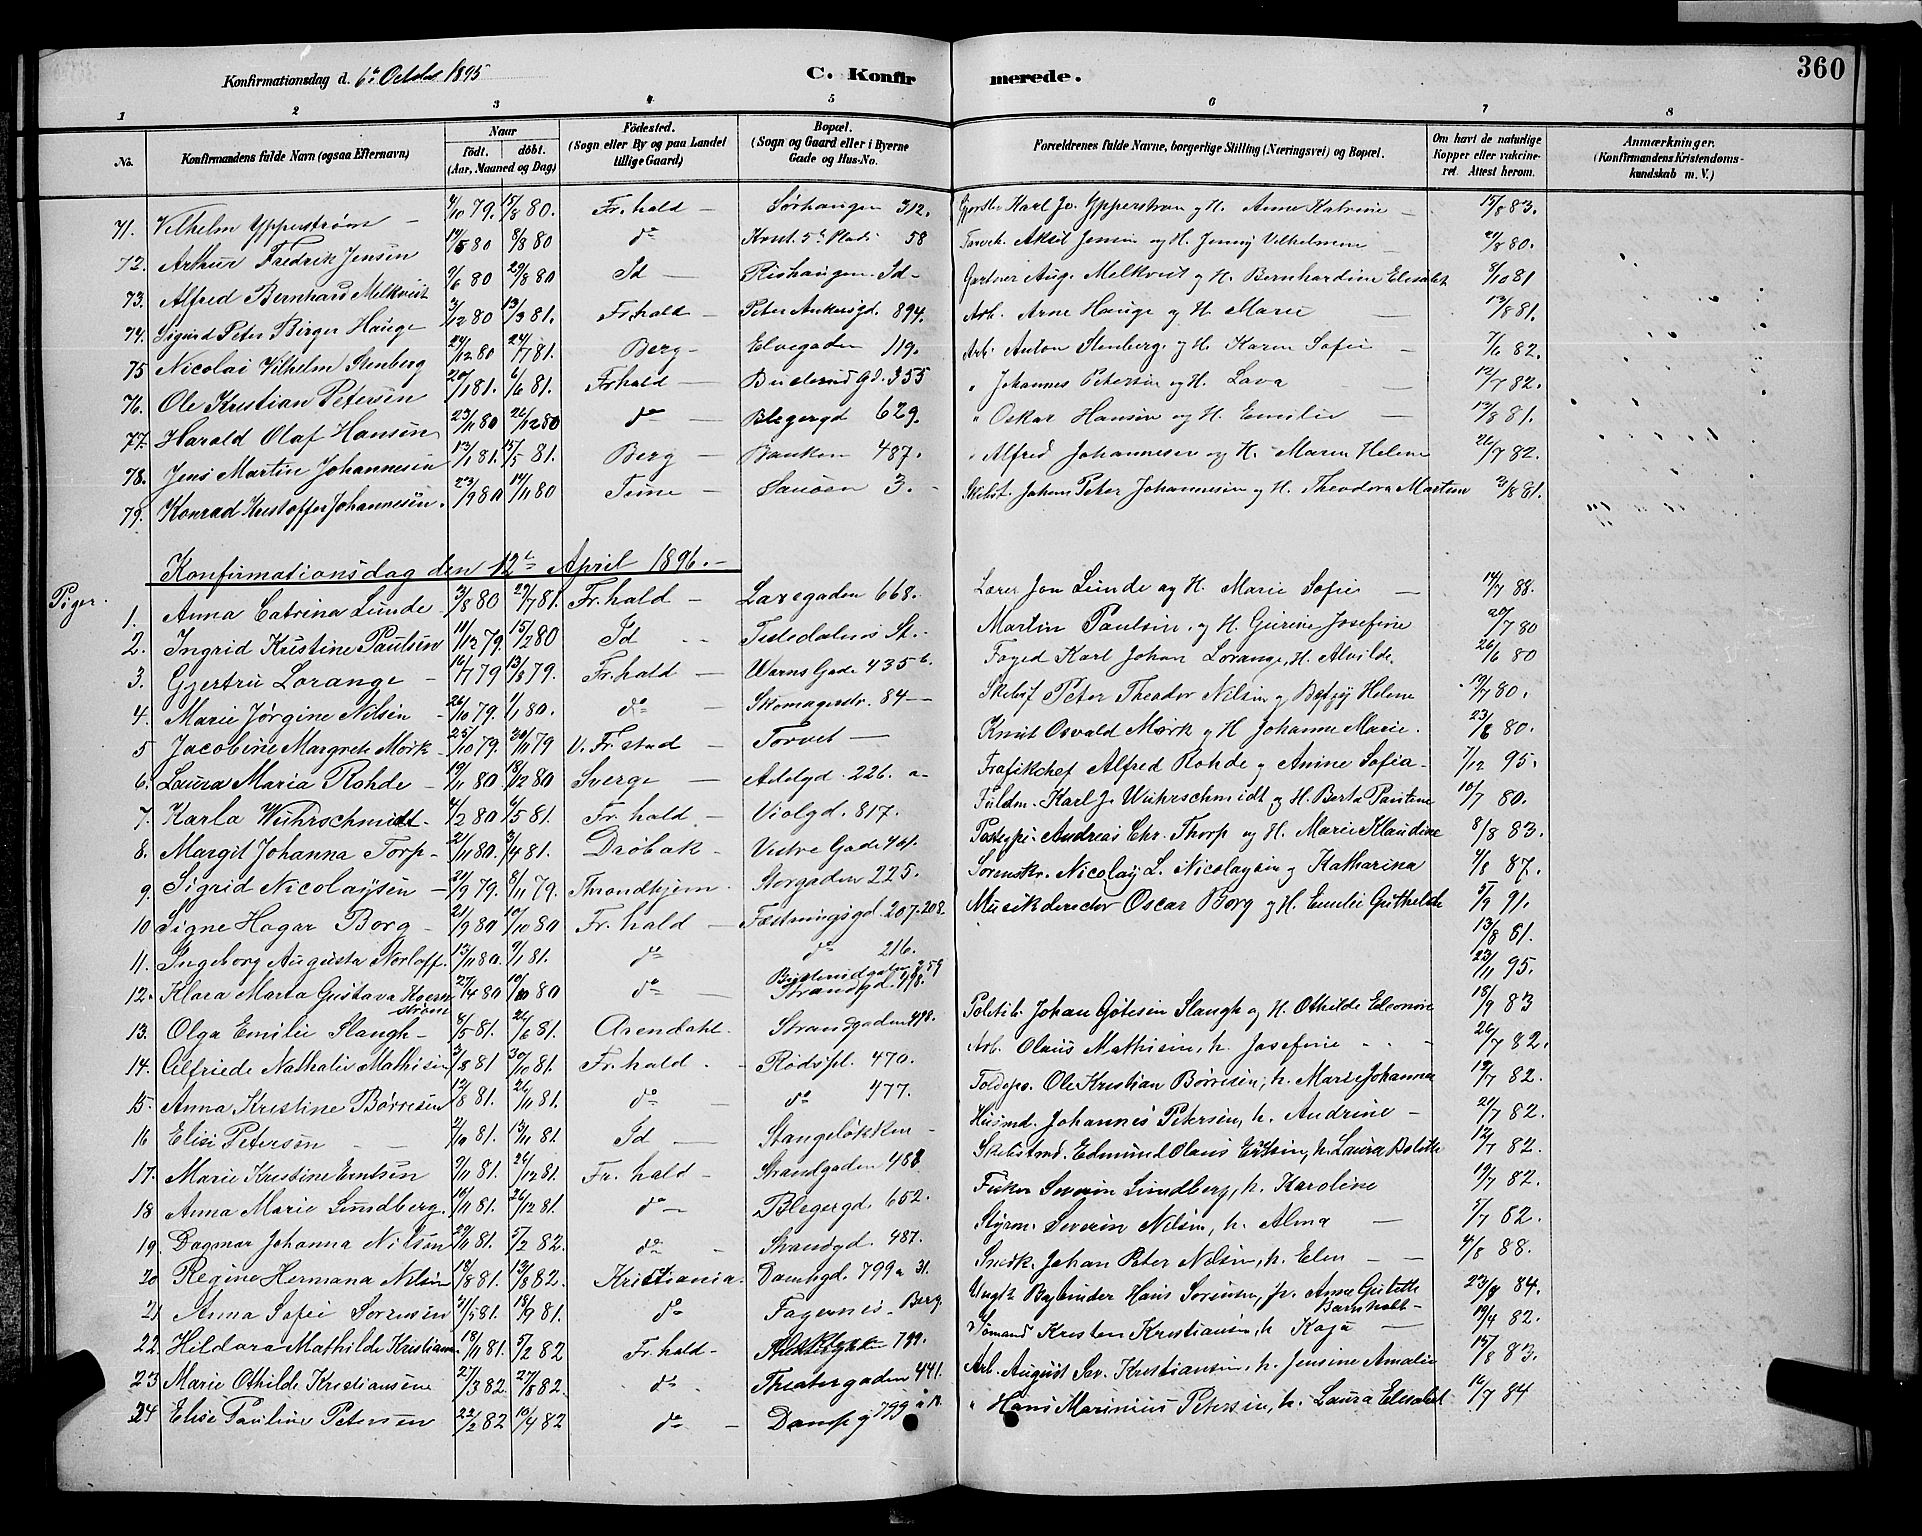 360
Konfirmationsdag d. 6te October 1895
C. Konfirmerede.
1 2 3 4 5 6 7 8
No. Konfirmandens fulde Navn (ogsaa Efternavn) Naar født. døbt. (Aar, Maaned og Dag) Fødested. (Sogn eller By og paa Landet tillige Gaard) Bopæl. (Sogn og Gaard eller i Byerne Gade og Hus-No. Forældrenes fulde Navne, borgerlige Stilling (Næringsvei) og Bopæl. Om havt de naturlige Kopper eller vakcineret. Attest herom. Anmærkninger. (Konfirmandens Kristendomskundskab m. V.)
71. Vilhelm Ypperstrøm 4/10 79. 15/8 80. Fr.hald Sørhaugen 312. Karl Jo. Ypperstrøm og H. Anne Katrine 15/8 83.
72. Arthur Fredrik Jensen 19/5 80 8/8 80 do 58 Aksel Jensen og H. Jenny Vilhelmine 21/8 80.
73. Alfred Bernhard Melkveit 9/6 80 29/8 80 Id Rishaugen Id Gartner Aug. Melkveit og H. Bernhardine Elisabet 9/10 81
74. Sigurd Peter Birger Hauge 3/12 80 13/3 81. Fr.hald Peter Ankersgd. 894. Arb. Arne Hauge og H. Marie 13/8 81.
75 Nicolai Vilhelm Stenberg 24/12 80 24/7 81. Berg Elvegaden 119. Arb. Anton Stenberg og H. Karen Sofie 7/6 82.
76. Ole Kristian Petersen 20/1 81. 6/6 81. Fr.hald Buslerud Gd. 355 " Johannes Petersen og H. Lava 12/7 82.
77. Harald Olaf Hansen 23/11 80 26/12 80 do Blegergd 629. " Oskar Hansen og H. Emilie 13/8 81.
78. Jens Martin Johannesen 13/1 81. 15/5 81. Berg Banken 487. " Alfred Johannesen og H. Maren Helene 26/7 82.
79. Konrad Kristoffer Johannesen. 23/9 80 14/11 80 Tune Sauøen 3. Johan Peter Johannesen og H. Theodora Martine 3/8 81.
Konfirmationsdag den 12te April 1896.
Piger.
1. Anna Catrina Lunde 3/8 80 27/7 81. Fr.hald Laregaden 668. Lærer Jon Lunde og H. Marie Sofie 14/7 88.
2. Ingrid Kristine Paulsen 11/12 79. 15/2 80 Id Tistedalens St. Martin Paulsen og H. Gurine Josefine 20/7 80
3. Gjertru Lorange 16/7 79 13/8 79. Fr.hald Wærns Gade 435 b. Foged Karl Johan Lorange, H. Alvilde. 26/6 80
4. Marie Jørgine Nilsen 26/10 79. 1/1 80. do Skomagerstr. 84 Peter Theodor Nilsen og Betzy Helene 19/7 80.
5 Jacobine Margrete Mørk 25/10 79. 20/11 79 V. Fr.stad Torvet Knut Osvald Mørk og H Johanne Marie. 23/8 80.
6. Laura Maria Rohde 19/11 80 18/12 80 Sverge Adelgd. 226. a Trafikchef Alfred Rohde og Anine Sofia 7/12 95.
7. Karla Wuhrschmidt 4/2 80 6/5 81. Fr.hald Violgd. 817. Fuldm. Karl J. Wuhrschmidt og H. Berta Pauline 10/7 80.
8. Margit Johanna Torp 21/11 80. 3/4 81. Drøbak Vestre Gade 461. Andreas Chr. Thorp og H. Marie Klaudine 8/8 83.
9. Sigrid Nicolaysen 21/9 79. 8/11 79. Throndhjem. Storgaden 225. Sorenskr. Nicolay L. Nicolaysen og Katharina 4/8 87.
10 Signe Hagar Borg 21/9 80 10/10 80 Fr.hald Fæstningsgd. 207.208. Musikdirector Oscar Borg og H. Emilie Guthilde 5/9 91.
11. Ingeborg Augusta Norloff. 13/11 80. 9/1 81. do do 216. 13/8 81.
12. Klara Marta Gustava strøm 27/4 80 10/10 80 do 259 Strandgd. 498. 23/11 95.
13. Olga Emilie Slaugh 8/5 81. 26/6 81. Arendahl. Strandgaden 498. Politib. Johan Gotesen Slaugh og H. Othilde Eleonore 18/9 83
14. Alfriede Nathalie Mathisen 3/8 81 30/10 81. Fr.hald Rødspl. 470. Arb. Olaus Mathisen, h. Josefine 26/7 82.
15. Anna Kristine Børresen 12/8 81. 26/11 81. do do 477. Toldop. Ole Kristian Børresen, h. Marie Johanna 19/7 82.
16 Elisi Petersen 2/10 81. 13/11 81. Id Stangeløkken Husmd. Johannes Petersen, h. Andrine 21/7 82.
17. Marie Kristine Emtsen 9/11 81. 26/12 81. Fr.hald Strandgaden 488 Edmund Olaus h. Laura Bolette 12/7 82.
18 Anna Marie Lundberg. 16/11 81. 26/12 81. do Blegergd. 652. Fisker Severin Lundberg, h. Karoline 19/7 82.
19. Dagmar Johanna Nilsen 29/11 81. 5/2 82. do Strandgd. 487. Styrm. Severin Nilsen, h. Alma 5/7 82.
20 Regine Hermana Nilsen 18/8 81. 13/8 82. Kristiania. Dampgd. 799 a 31. Snedk. Johan Peter Nilsen, h. Elen 4/8 88.
21. Anna Sofie Sørensen 21/5 81. 18/9 81. do Fagernes. Berg. Ungk. Bogbinder Hans Sørensen, Jr. Anne Gulette Barnholt 23/9 84.
22. Hildora Mathilde Kristiansen 18/11 81. 5/2 82 Fr.hald 799. Sømand Kristen Kristiansen h Kaja 19/4 82.
23 Marie Othilde Kristiansen 27/3 82. 27/8 82. do Theatergaden 441. Arb. August Sev. Kristiansen, h. Jensine Amalie 15/8 83.
24 Elise Pauline Petersen 22/2 82 10/4 82 do Damp g 799 a 12 " Hans Marinius Petersen, h. Laura Elisabet 16/7 84